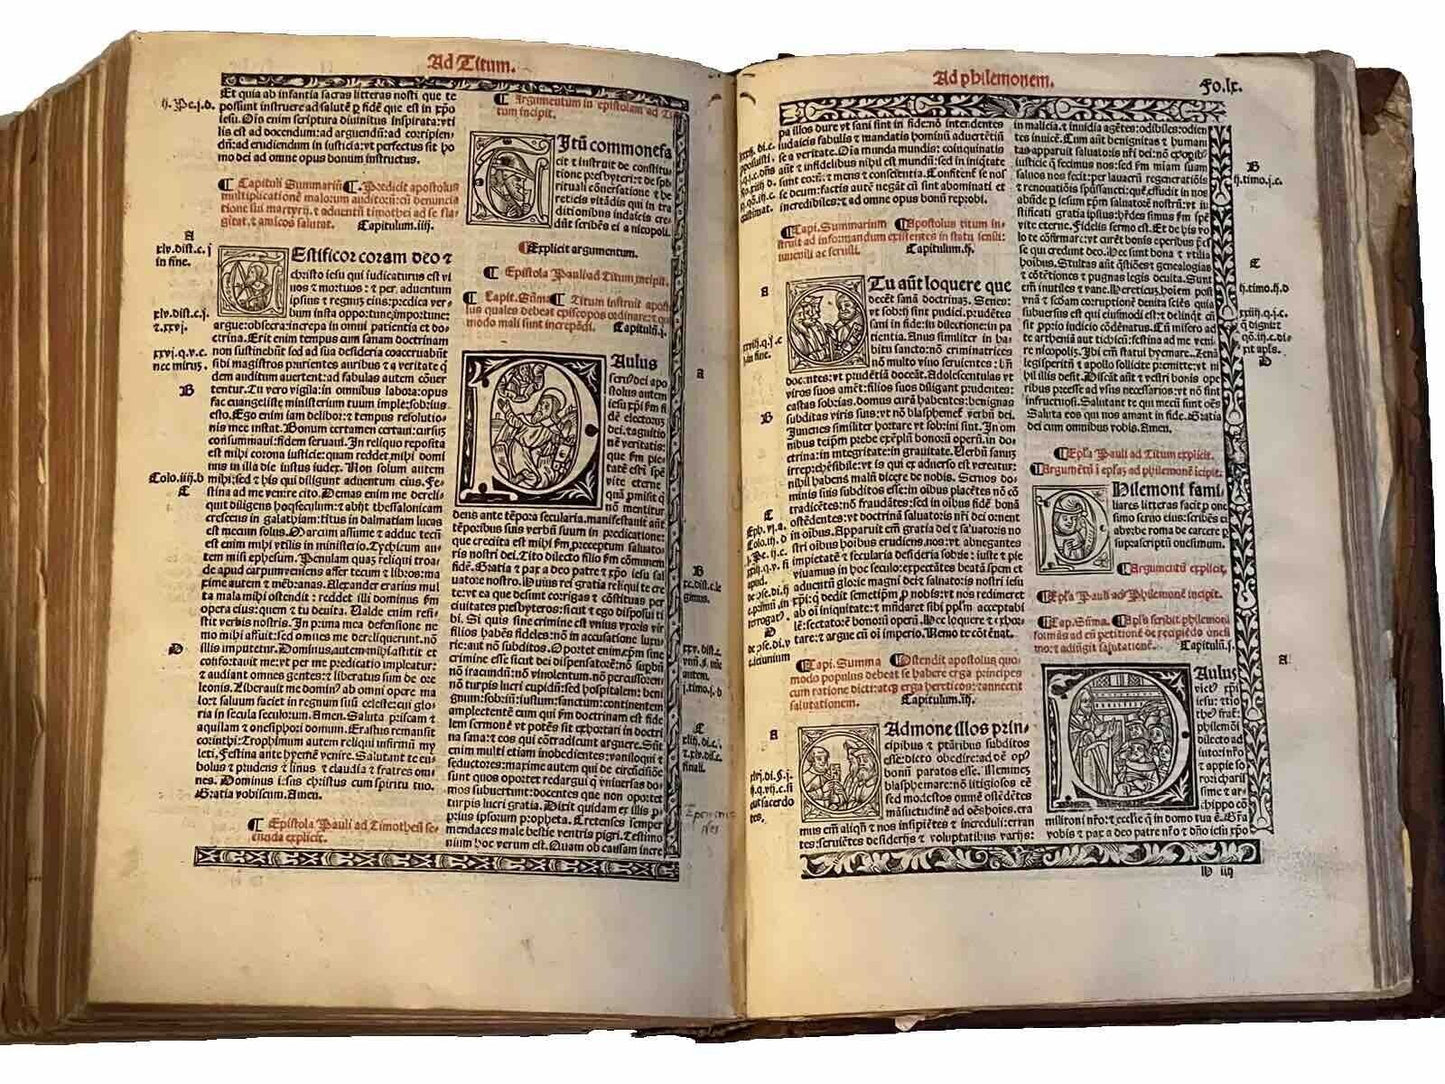 Ad Titum.
Et quia ab infantia sacras litteras nosti que te
possunt instruere ad salutē p fidē que est in xp̄o
iesu. Oīs enim scriptura diuinitus inspirata: vti
lis est ad docendum: ad arguendū: ad corripien-
dū: ad erudiendum in iusticia: vt perfectus sit ho
mo dei ad omne opus bonum instructus.
¶ Capituli Summariū ¶ Predicit apostolus
multiplicationē malorum auditorū: cū denuncia
tione sui martyrij. ⁊ aduentū timothei ad se fla-
gitat. ⁊ amicos salutat. Capitulum .iiij.
Testificor coram deo ⁊
christo iesu qui iudicaturus est vi
uos ⁊ mortuos: ⁊ per aduentum
ipsius ⁊ regnum eius: predica ver-
bum insta opportune: importune:
argue: obsecra: increpa in omni patientia et do-
ctrina. Erit enim tempus cum sanam doctrinam
non sustinebūt sed ad sua desideria coaceruabūt
sibi magistros prurientes auribus ⁊ a veritate q̄
dem auditum auertent: ad fabulas autem cōuer
tentur. Tu vero vigila: in omnibus labora: opus
fac euangeliste: ministerium tuum imple: sobrius
esto. Ego enim iam delibor: ⁊ tempus resolutio-
nis mee instat. Bonum certamen certaui: cursuʒ
consummaui: fidem seruaui. In reliquo reposita
est mihi corona iusticie: quam reddet mihi domi
nus in illa die iustus iudex. Non solum autem
mihi: sed ⁊ his qui diligunt aduentum eius. Fe-
stina ad me venire cito. Demas enim me dereli-
quit diligens hoc seculum: ⁊ abijt thessalonicam
crescens in galathiam: titus in dalmatiam lucas
est mecum solus. Marcum assume ⁊ adduc tecū
est enim mihi vtilis in ministerio. Tychicum au-
tem misi ephesum. Penulam quaʒ reliqui troa-
de apud carpum veniens affer tecum ⁊ libros: ma
xime autem ⁊ mēbranas. Alexander erarius mul
ta mala mihi ostendit: reddet illi dominus s̄m
opera eius: quem ⁊ tu deuita. Valde enim resti-
stit verbis nostris. In prima mea defensione ne-
mo mihi affuit: sed omnes me dereliquerunt: nō
illis imputetur. Dominus autem mihi astitit et
confortauit me: vt per me predicatio impleatur:
⁊ audiant omnes gentes: ⁊ liberatus sum de ore
leonis. Liberauit me dominꝰ ab omni opere ma
lo: ⁊ saluum faciet in regnum suū celeste: cui glo-
ria in secula seculorum. Amen. Saluta priscam ⁊
aquilam ⁊ onesiphori domum. Erastus remansit
corinthi: Trophimum autem reliqui infirmū my
leti. Festina ante hyemē venire. Salutant te eu-
bolus ⁊ prudens ⁊ linus ⁊ claudia ⁊ fratres om-
nes. Dominus iesus christus cum spiritu tuo.
Gratia vobiscum. Amen.
¶ Epistola Pauli ad Timotheū se-
cunda explicit.
¶ Argumentum in epistolam ad Ti
tum incipit.
Titū commonefa
cit ⁊ instruit de constitu
tione presbyteri: ⁊ de spi
rituali cōuersatione ⁊ he
reticis vitādis qui in tra
ditionibus iudaicis cre
dūt scribēs ei a nicopoli.
¶ Explicit argumentum.
¶ Epistola Pauli ad Titum incipit.
¶ Capit. Sūma ¶ Titum instruit aposto
lus quales debeat episcopos ordinare: ⁊ quo
modo mali sunt increpādi. Capitulū .i.
Paulus
seruꝰ dei apo
stolus autem
iesu xp̄i s̄m fi
dē electorum
dei. ⁊ agnitio
nē veritatis:
que s̄m pie-
tatē est ī spē
vite eterne
quā ꝓmisit q̄
nō mentitur
deus ante tēpora secularia. manifestauit aūt
tēporibus suis verbū suum in predicatione:
que credita est mihi s̄m preceptum saluato-
ris nostri dei. Tito dilecto filio s̄m cōmunem
fidē. Gratia ⁊ pax a deo patre ⁊ xp̄o iesu sal
uatore nostro. Huius rei gratia reliqui te cre
te: vt ea que desunt corrigas ⁊ cōstituas per
ciuitates presbyteros: sicut ⁊ ego disposui ti
bi. Si quis sine crimine est vnius vxoris vir
filios habēs fideles: nō in accusatione luxu-
rie: aut nō subditos. Oportet enim ep̄m sine
crimine esse sicut dei dispensatorē: nō supbū
nō iracundū: nō vinolentum. nō percussorem
nō turpis lucri cupidū: sed hospitalem: beni
gnum: sobriū: iustum: sanctum: continentem
amplectentē eum qui s̄m doctrinam est fide
lem sermonē vt potēs sit exhortari in doctri
na sana: ⁊ eos qui cōtradicūt arguere. Sūt
enim multi etiam inobedientes: vaniloqui ⁊
seductores: maxime autem qui de circūcisiōe
sunt quos oportet redargui q̄ vniuersas do-
mos subuertunt: docentes que non oportet
turpis lucri gratia. Dixit quidam ex illis p̄-
prius ipsorum propheta. Cretenses semper
mendaces male bestie ventris pigri. Testimo
nium hoc verum est. Quam ob causam incre
Ad philemonem.
Fo.lx.
pa illos dure vt sani sint in fide: nō intendentes
iudaicis fabulis ⁊ mandatis hominū aduertētiū
se a veritate. Oīa munda mundis: coinquinatis
aūt ⁊ infidelibus nihil est mundū: sed inqnate
sunt eorū ⁊ mens ⁊ conscientia. Confitent se nos
se deum: factis autē negāt cū sint abominati et
incredibiles: ⁊ ad omne opus bonū reprobi.
¶ Capi. Summarium ¶ Apostolus titum in-
struit ad informandum existentes in statu senili:
iuuenili ac seruili. Capitulum .ij.
Tu aūt loquere que
decēt sanā doctrinaʒ. Senes:
vt sobrij sint pudici. prudētes
sani in fide: in dilectione: in pa
tientia. Anus similiter in ha-
bitu sancto: nō criminatrices
nō multo vino seruientes: bn̄
docentes: vt prudētiā doceāt. Adolescentulas vt
viros suos amēt: filios suos diligant prudentes:
castas sobrias. domus curā habentes: benignas
subditas viris suis: vt nō blasphemeꝉ verbū dei.
Iuuenes similiter hortare vt sobrij sint. In om
nibus teipm̄ prebe exēplū bonorū operū. in do-
ctrina: in integritate: in grauitate. Verbū sanuʒ
irreprehēsibile: vt is qui ex aduerso est vereatur:
nihil habens malū dicere de nobis. Seruos do-
minis suis subditos esse: in oībus placētes nō cō
tradicētes: nō fraudātes: sed in oībus fidē bonā
ostēdentes: vt doctrinā saluatoris nr̄i dei ornent
in oībus. Apparuit em̄ gratia dei ⁊ saluatoris no
stri oībus hoībus erudiens nos: vt abnegantes
impietatē ⁊ secularia desideria sobrie: iuste ⁊ pie
viuamus in hoc seculo: expectātes beatā spem et
aduentū glorie magni dei: ⁊ saluatoris nostri iesu
xp̄i: q̄ dedit semetipm̄ p nobis: vt nos redimeret
ab oī iniquitate: ⁊ mūdaret sibi ppl̄m acceptabi
lē: sectatorē bonorū operū. Hec loquere ⁊ exhor-
tare: ⁊ argue cū oī imperio. Nemo te cōtēnat.
¶ Capi. Summa ¶ Ostendit apostolus quo-
modo populus debeat se habere erga principes
cum ratione dicti: atq̄ erga hereticos: annectit
salutationem. Capitulum .iij.
Admone illos prin-
cipibus ⁊ ptātibus subditos
esse: dicto obedire: ad oē op̄
bonū paratos esse. Neminem
blasphemare: nō litigiosos eē
sed modestos omnē ostēdētes
māsuetudinē ad oēs hoies. era
mus em̄ aliqn̄ ⁊ nos insipiētes ⁊ increduli: erran
tes: seruiētes desiderijs ⁊ voluptatibus varijs:
in malicia. ⁊ inuidia agētes: odibiles: odien
tes inuicē. Cum aūt benignitas ⁊ humani
tas apparuit saluatoris nr̄i dei: nō ex opib
iusticie q̄ fecimus nos: sed s̄m miam suam
saluos nos fecit: per lauacrū regeneratiōis
⁊ renouatiōis spūssancti: quē effudit in nos
abūde p iesum xp̄m saluatorē nostrū: vt iu
stificati gratia ipsius: hr̄des simus s̄m spē
vite eterne. Fidelis sermo est. Et de his vo
lo te cōfirmare: vt curēt bonis operibus p̄ee
qui credunt deo. Hec sunt bona ⁊ vtilia
hoībus. Stultas aūt q̄stiōes ⁊ genealogias
⁊ cōtētiones ⁊ pugnas legis deuita. Sunt
em̄ inutiles ⁊ vane. Hereticuʒ hoiem post
vnā ⁊ scdam corruptionē deuita sciēs quia
subuersus est qui eiusmodi est: ⁊ delinqt cū
sit pp̄rio iudicio cōdēnatus. Cū misero ad
te arthemā aut tichicū: festina ad me veni-
re nicopolīʒ. Ibi em̄ statui hyemare. Zenā
legisperitū ⁊ apollo sollicite premitte: vt ni
hil illis desit. Discāt aūt ⁊ vestri bonis ope
ribus p̄eesse ad vsus necessarios: vt nō sint
infructuosi. Salutant te qui mecū sunt oēs
Saluta eos qui nos amant in fide. Gratia
dei cum omnibus vobis. Amen.
¶ Epl̄a Pauli ad Titum explicit.
¶ Argumētū ī epl̄aʒ ad philemonē īcipit.
Philemoni fami
liares litteras facit p one
simo seruo eius: scribēs ei
ab vrbe roma de carcere p
suprascriptū onesimum.
¶ Argumētū explicit.
¶ Epl̄a Pauli ad Philemonē incipit.
¶ Cap. Sūma. ¶ Apl̄s scribit philemoni
Capitulū .i.
Paulus
victꝰ xp̄i
iesu: ⁊ timo
theꝰ frat
philemoni
dilecto ad
iutori nr̄o
⁊ appie so
rori charis
sime ⁊ ar-
chippo cō
militoni nr̄o: ⁊ ecclie q̄ in domo tua ē. Gr̄a
vobis ⁊ pax a deo patre nr̄o ⁊ dn̄o iesu xp̄o